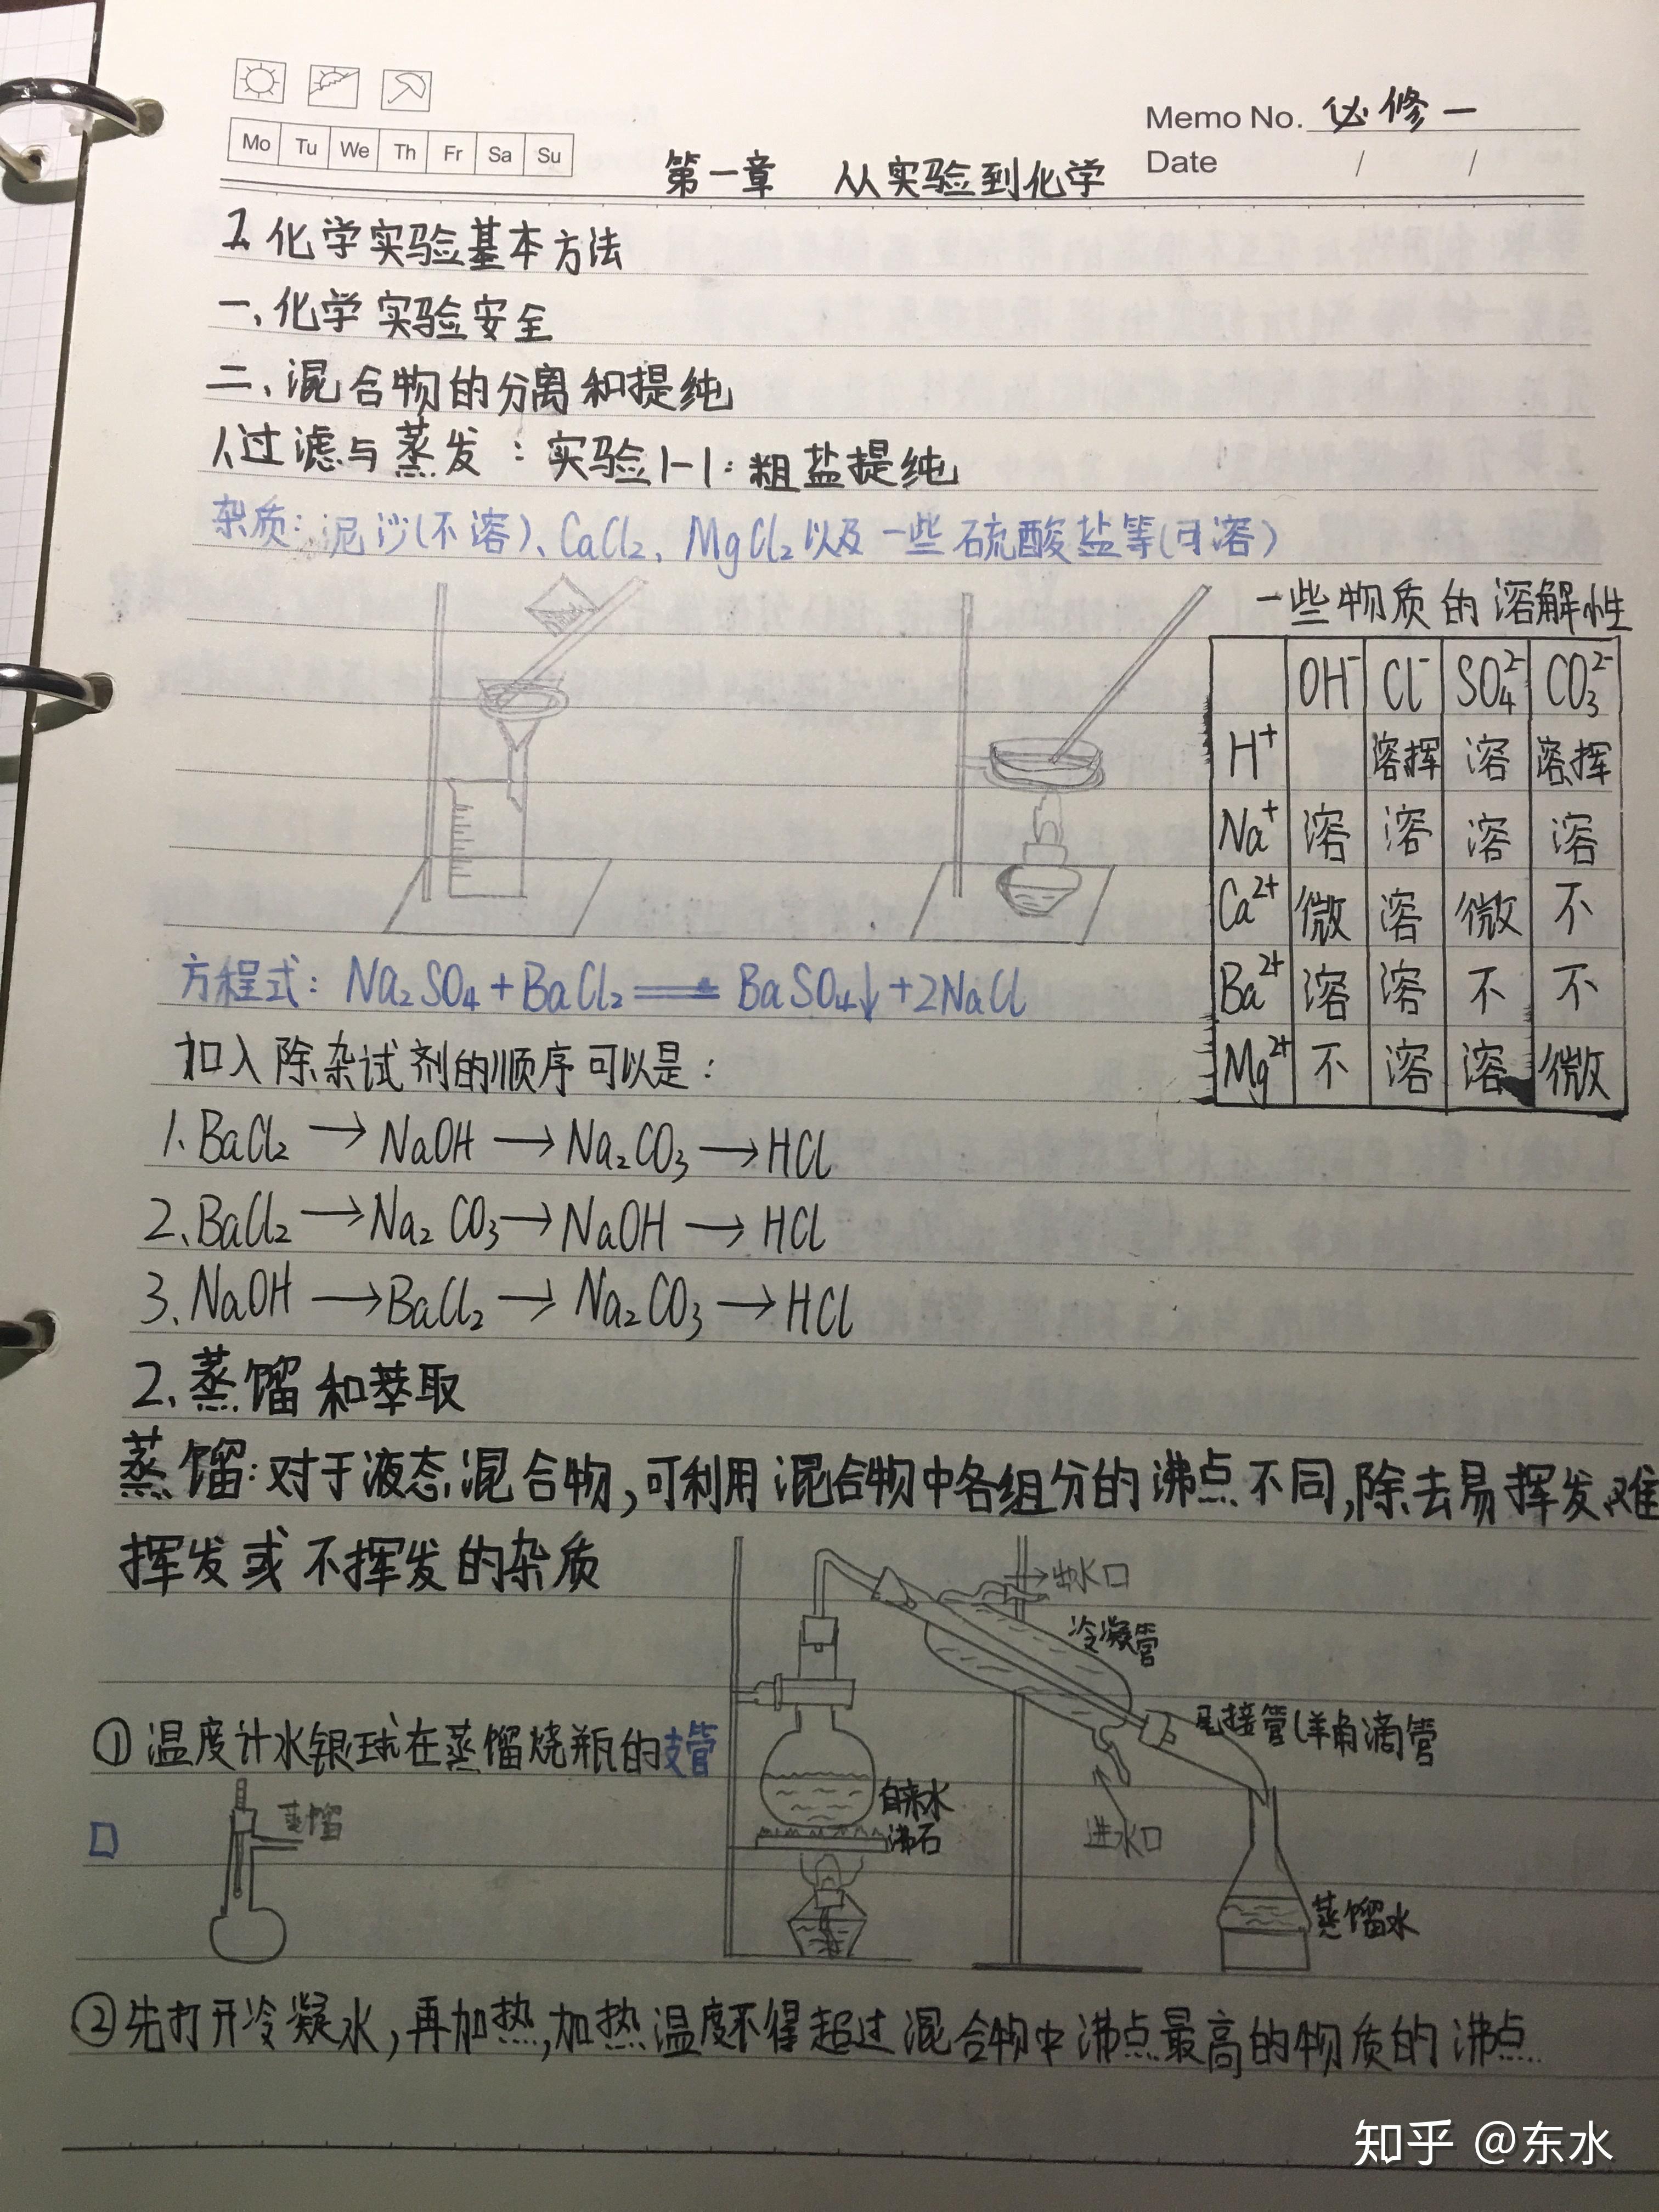 Memo No. 必修一
Mo Tu We Th Fr Sa Su
Date / /
第一章 从实验到化学
I.化学实验基本方法
一、化学实验安全
二、混合物的分离和提纯
1.过滤与蒸发：实验1-1：粗盐提纯
杂质：泥沙(不溶)、CaCl₂、MgCl₂以及一些硫酸盐等(可溶)
一些物质的溶解性
OH⁻ Cl⁻ SO₄²⁻ CO₃²⁻
H⁺ 溶挥 溶 溶挥
Na⁺ 溶 溶 溶 溶
Ca²⁺ 微 溶 微 不
Ba²⁺ 溶 溶 不 不
Mg²⁺ 不 溶 溶 微
方程式：Na₂SO₄+BaCl₂══BaSO₄↓+2NaCl
加入除杂试剂的顺序可以是：
1.BaCl₂→NaOH→Na₂CO₃→HCl
2.BaCl₂→Na₂CO₃→NaOH→HCl
3.NaOH→BaCl₂→Na₂CO₃→HCl
2.蒸馏和萃取
蒸馏：对于液态混合物,可利用混合物中各组分的沸点不同,除去易挥发、难
挥发或不挥发的杂质
→出水口
冷凝管
尾接管(羊角滴管
①温度计水银球在蒸馏烧瓶的支管
口
蒸馏
自来水
沸石
进水口
蒸馏水
②先打开冷凝水,再加热,加热温度不得超过混合物中沸点最高的物质的沸点
知乎 @东水